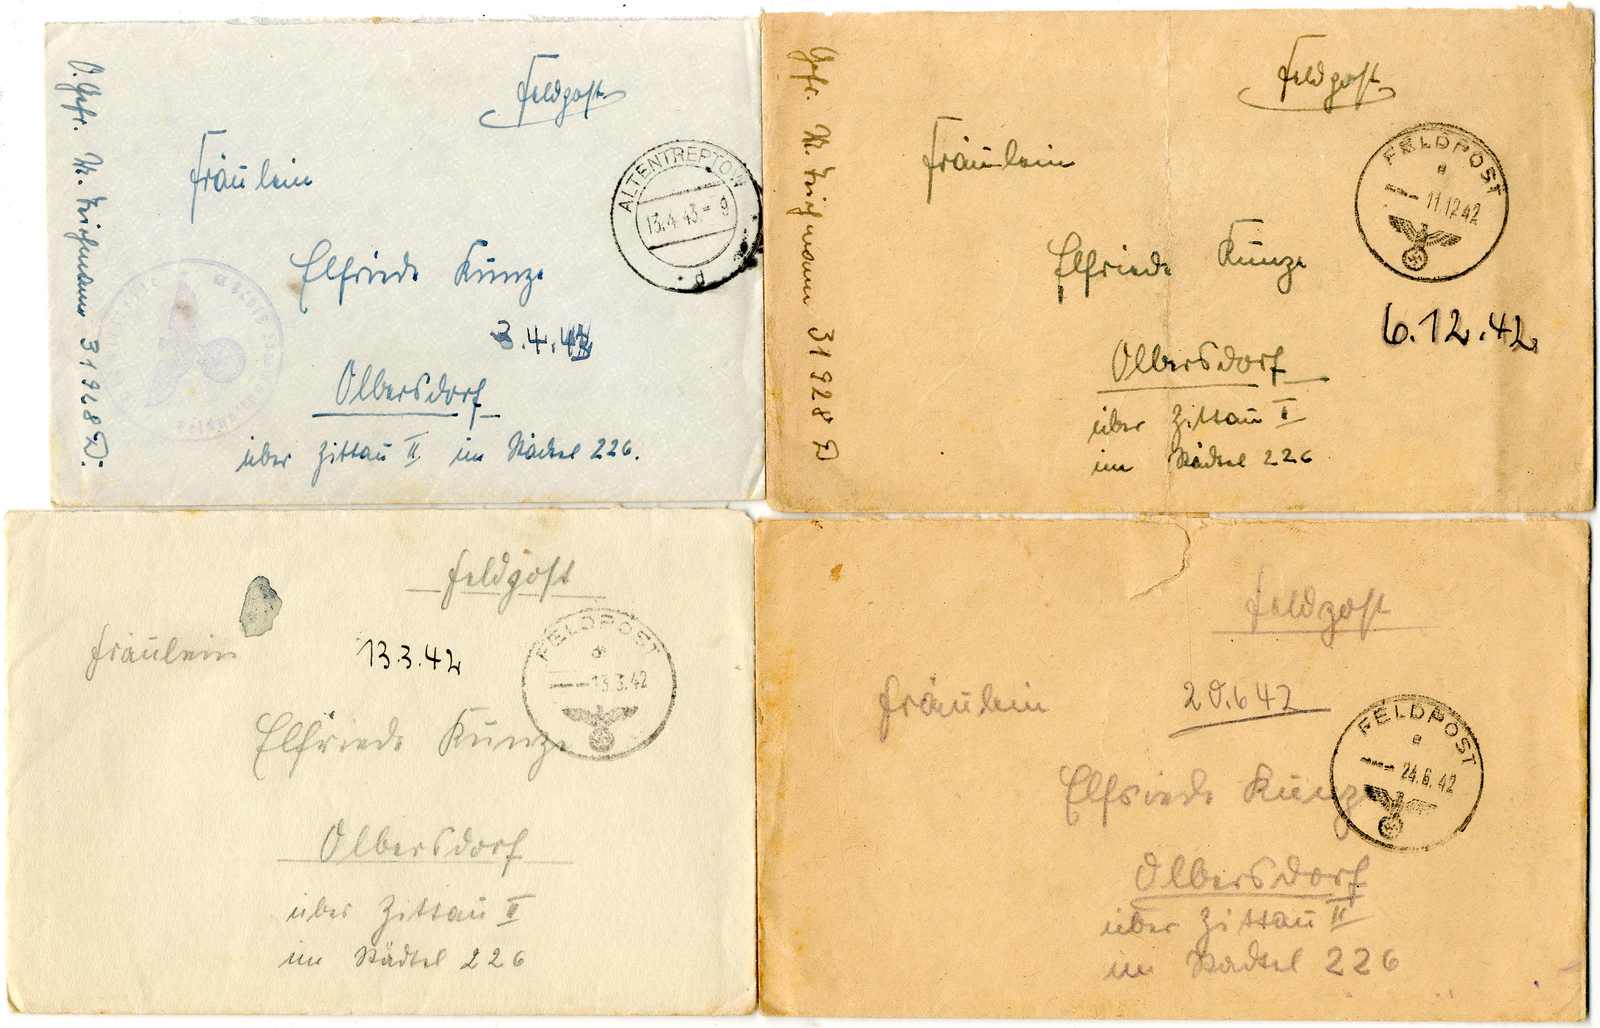 O. Gefr. W. Teichmann 31928 D.
Feldpost
Fräulein
ALTENTREPTOW
13.4.43-9
d
Elfriede Kunze
3.4.43
Olbersdorf
über Zittau II. im Städtel 226.
Gefr. W. Teichmann 31928 D
Feldpost
Fräulein
FELDPOST
a
11.12.42
Elfriede Kunze
6.12.42
Olbersdorf
über Zittau II
im Städtel 226
Feldpost
Fräulein
13.3.42
FELDPOST
13.3.42
Elfriede Kunze
Olbersdorf
über Zittau II
im Städtel 226
Feldpost
Fräulein
20.6 42
FELDPOST
e
24.6.42
Elfriede Kunze
Olbersdorf
über Zittau II
im Städtel 226